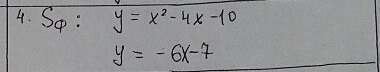 4. Sф: y = x² - 4x - 10
y = -6x - 7